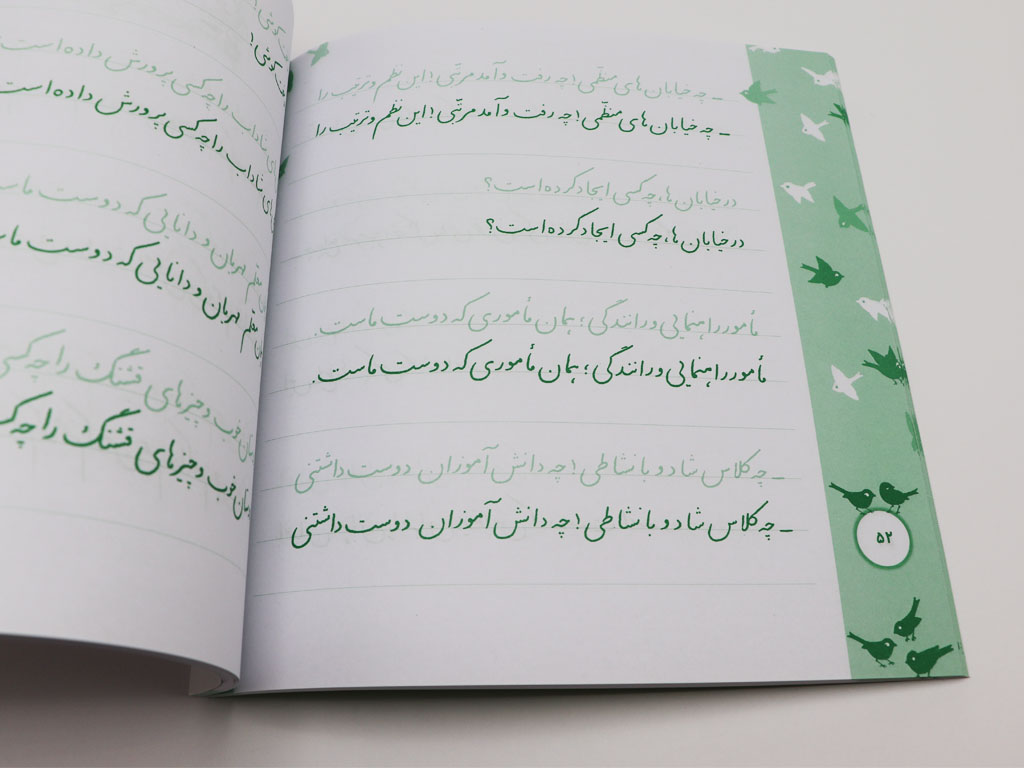 ـ چه خیابان های منظّمی! چه رفت و آمد مرتّبی! این نظم و ترتیب را
ـ چه خیابان های منظّمی! چه رفت و آمد مرتّبی! این نظم و ترتیب را
در خیابان ها، چه کسی ایجاد کرده است؟
در خیابان ها، چه کسی ایجاد کرده است؟
مأمور راهنمایی و رانندگی؛ همان مأموری که دوست ماست.
مأمور راهنمایی و رانندگی؛ همان مأموری که دوست ماست.
ـ چه کلاس شاد و با نشاطی! چه دانش آموزان دوست داشتنی
ـ چه کلاس شاد و با نشاطی! چه دانش آموزان دوست داشتنی
۵۲
کوشی!
کوشی!
شاداب را چه کسی پرورش داده است
شاداب را چه کسی پرورش داده است
معلّم مهربان و دانایی که دوست
معلّم مهربان و دانایی که دوست
خوب و چیزهای قشنگ را چه کسی
خوب و چیزهای قشنگ را چه